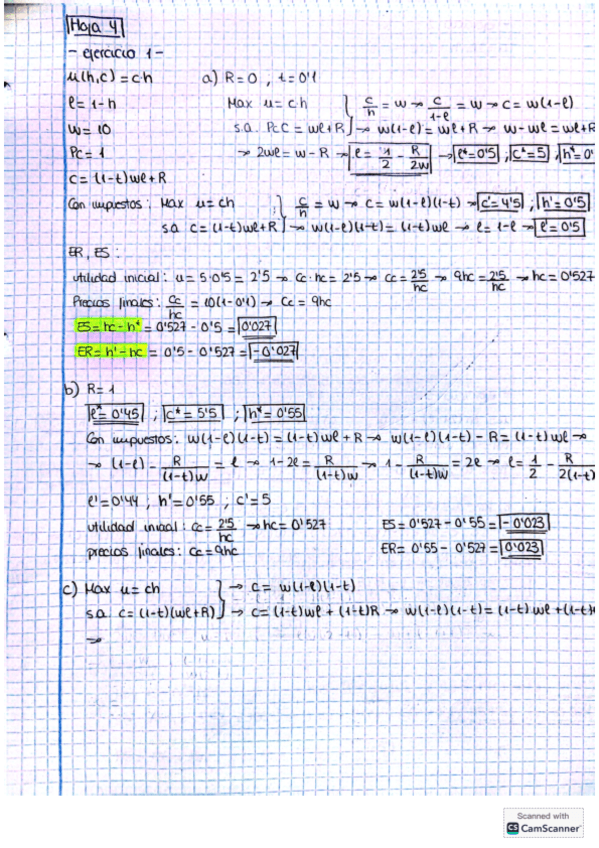 Hoja 4
- ejercicio 1 -
u(h,c) = c·h a) R=0 , t=0'1
l = 1-h Max u=c·h } c/h = w → c/1-l = w → c = w(1-l)
w = 10 s.a. PcC = wl+R } → w(1-l) = wl+R → w-wl = wl+R
Pc = 1 → 2wl = w-R → l = 1/2 - R/2w → l*=0'5 , c*=5 , h*=0'
c = (1-t)wl+R
Con impuestos: Max u=ch } c/h = w → c = w(1-l)(1-t) → c'=4'5 , h'=0'5
s.a c = (1-t)wl+R } → w(1-l)(1-t) = (1-t)wl → l = 1-l → l'=0'5
ER, ES :
utilidad inicial: u = 5·0'5 = 2'5 → Cc·hc = 2'5 → Cc = 2'5/hc → 9hc = 2'5/hc → hc = 0'527
Precios finales: Cc/hc = 10(1-0'1) → Cc = 9hc
ES = hc - h* = 0'527 - 0'5 = 0'027
ER = h' - hc = 0'5 - 0'527 = -0'027
b) R=1
l*=0'45 ; c*=5'5 ; h*=0'55
Con impuestos: w(1-l)(1-t) = (1-t)wl + R → w(1-l)(1-t) - R = (1-t)wl →
→ (1-l) - R/(1-t)w = l → 1-2l = R/(1-t)w → 1 - R/(1-t)w = 2l → l = 1/2 - R/2(1-t
l'=0'44 ; h'=0'55 ; c'=5
utilidad inicial: Cc = 2'5/hc → hc = 0'527 ES = 0'527 - 0'55 = -0'023
precios finales: Cc = 9hc ER = 0'55 - 0'527 = 0'023
c) Max u=ch } → c = w(1-l)(1-t)
s.a. c = (1-t)(wl+R) } → c = (1-t)wl + (1-t)R → w(1-l)(1-t) = (1-t)wl + (1-t)
→
Scanned with
CS CamScanner